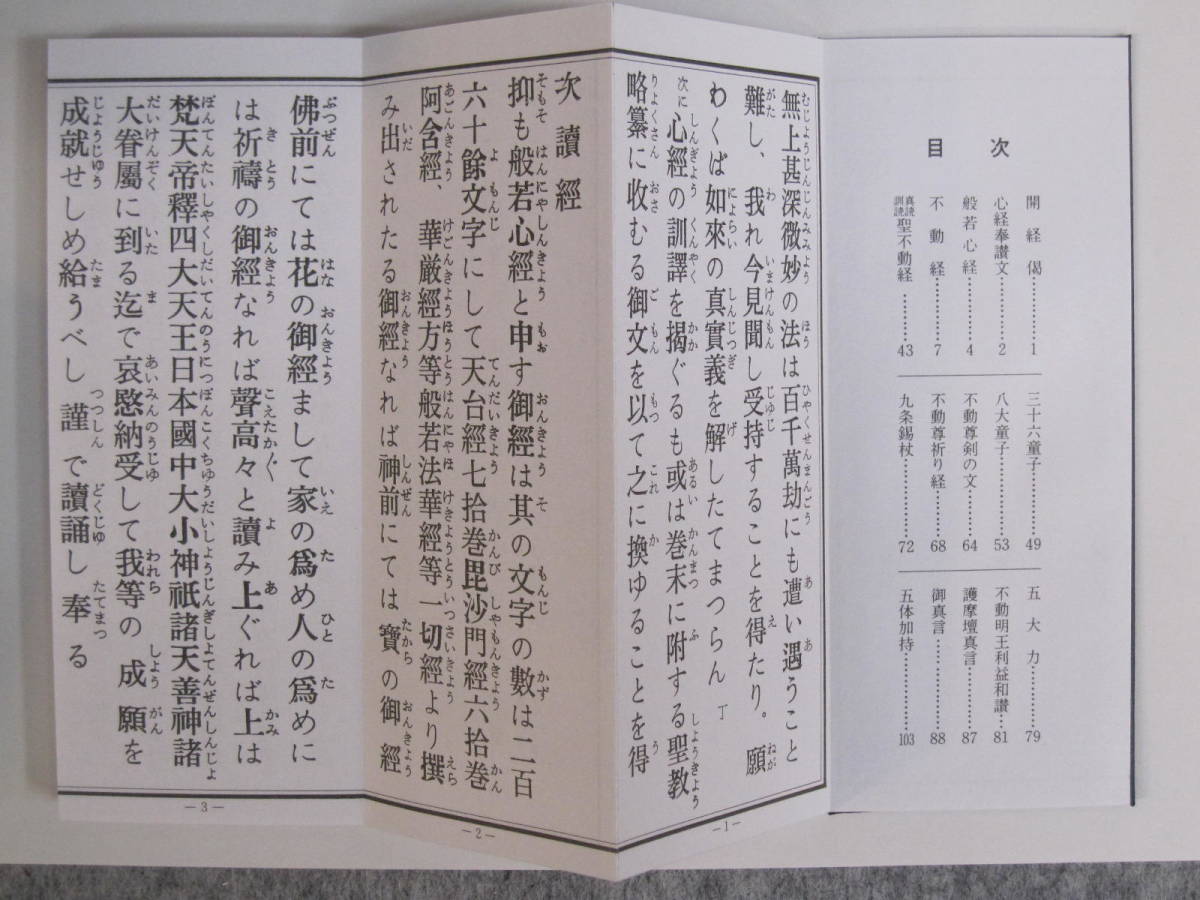 目次
開経偈……………1
心経奉讃文…………2
般若心経…………4
不動経……………7
真読訓読聖不動経………43
三十六童子…………49
八大童子…………53
不動尊剣の文…………64
不動尊祈り経…………68
九条錫杖…………72
五大力……………79
不動明王利益和讃……81
護摩壇真言…………87
御真言……………88
五体加持…………103
無上甚深微妙の法は百千萬劫にも遭い遇うこと
難し、我れ今見聞し受持することを得たり。願
わくば如來の真實義を解したてまつらん 丁
次に心經の訓譯を揭ぐるも或は巻末に附する聖教
略纂に收むる御文を以て之に換ゆることを得
—1—
次讀經
抑も般若心經と申す御經は其の文字の數は二百
六十餘文字にして天台經七拾巻毘沙門經六拾巻
阿含經、華厳經方等般若法華經等一切經より撰
み出されたる御經なれば神前にては寶の御經
—2—
佛前にては花の御經まして家の爲め人の爲めに
は祈禱の御經なれば聲高々と讀み上ぐれば上は
梵天帝釋四大天王日本國中大小神祇諸天善神諸
大眷屬に到る迄で哀愍納受して我等の成願を
成就せしめ給うべし謹で讀誦し奉る
—3—